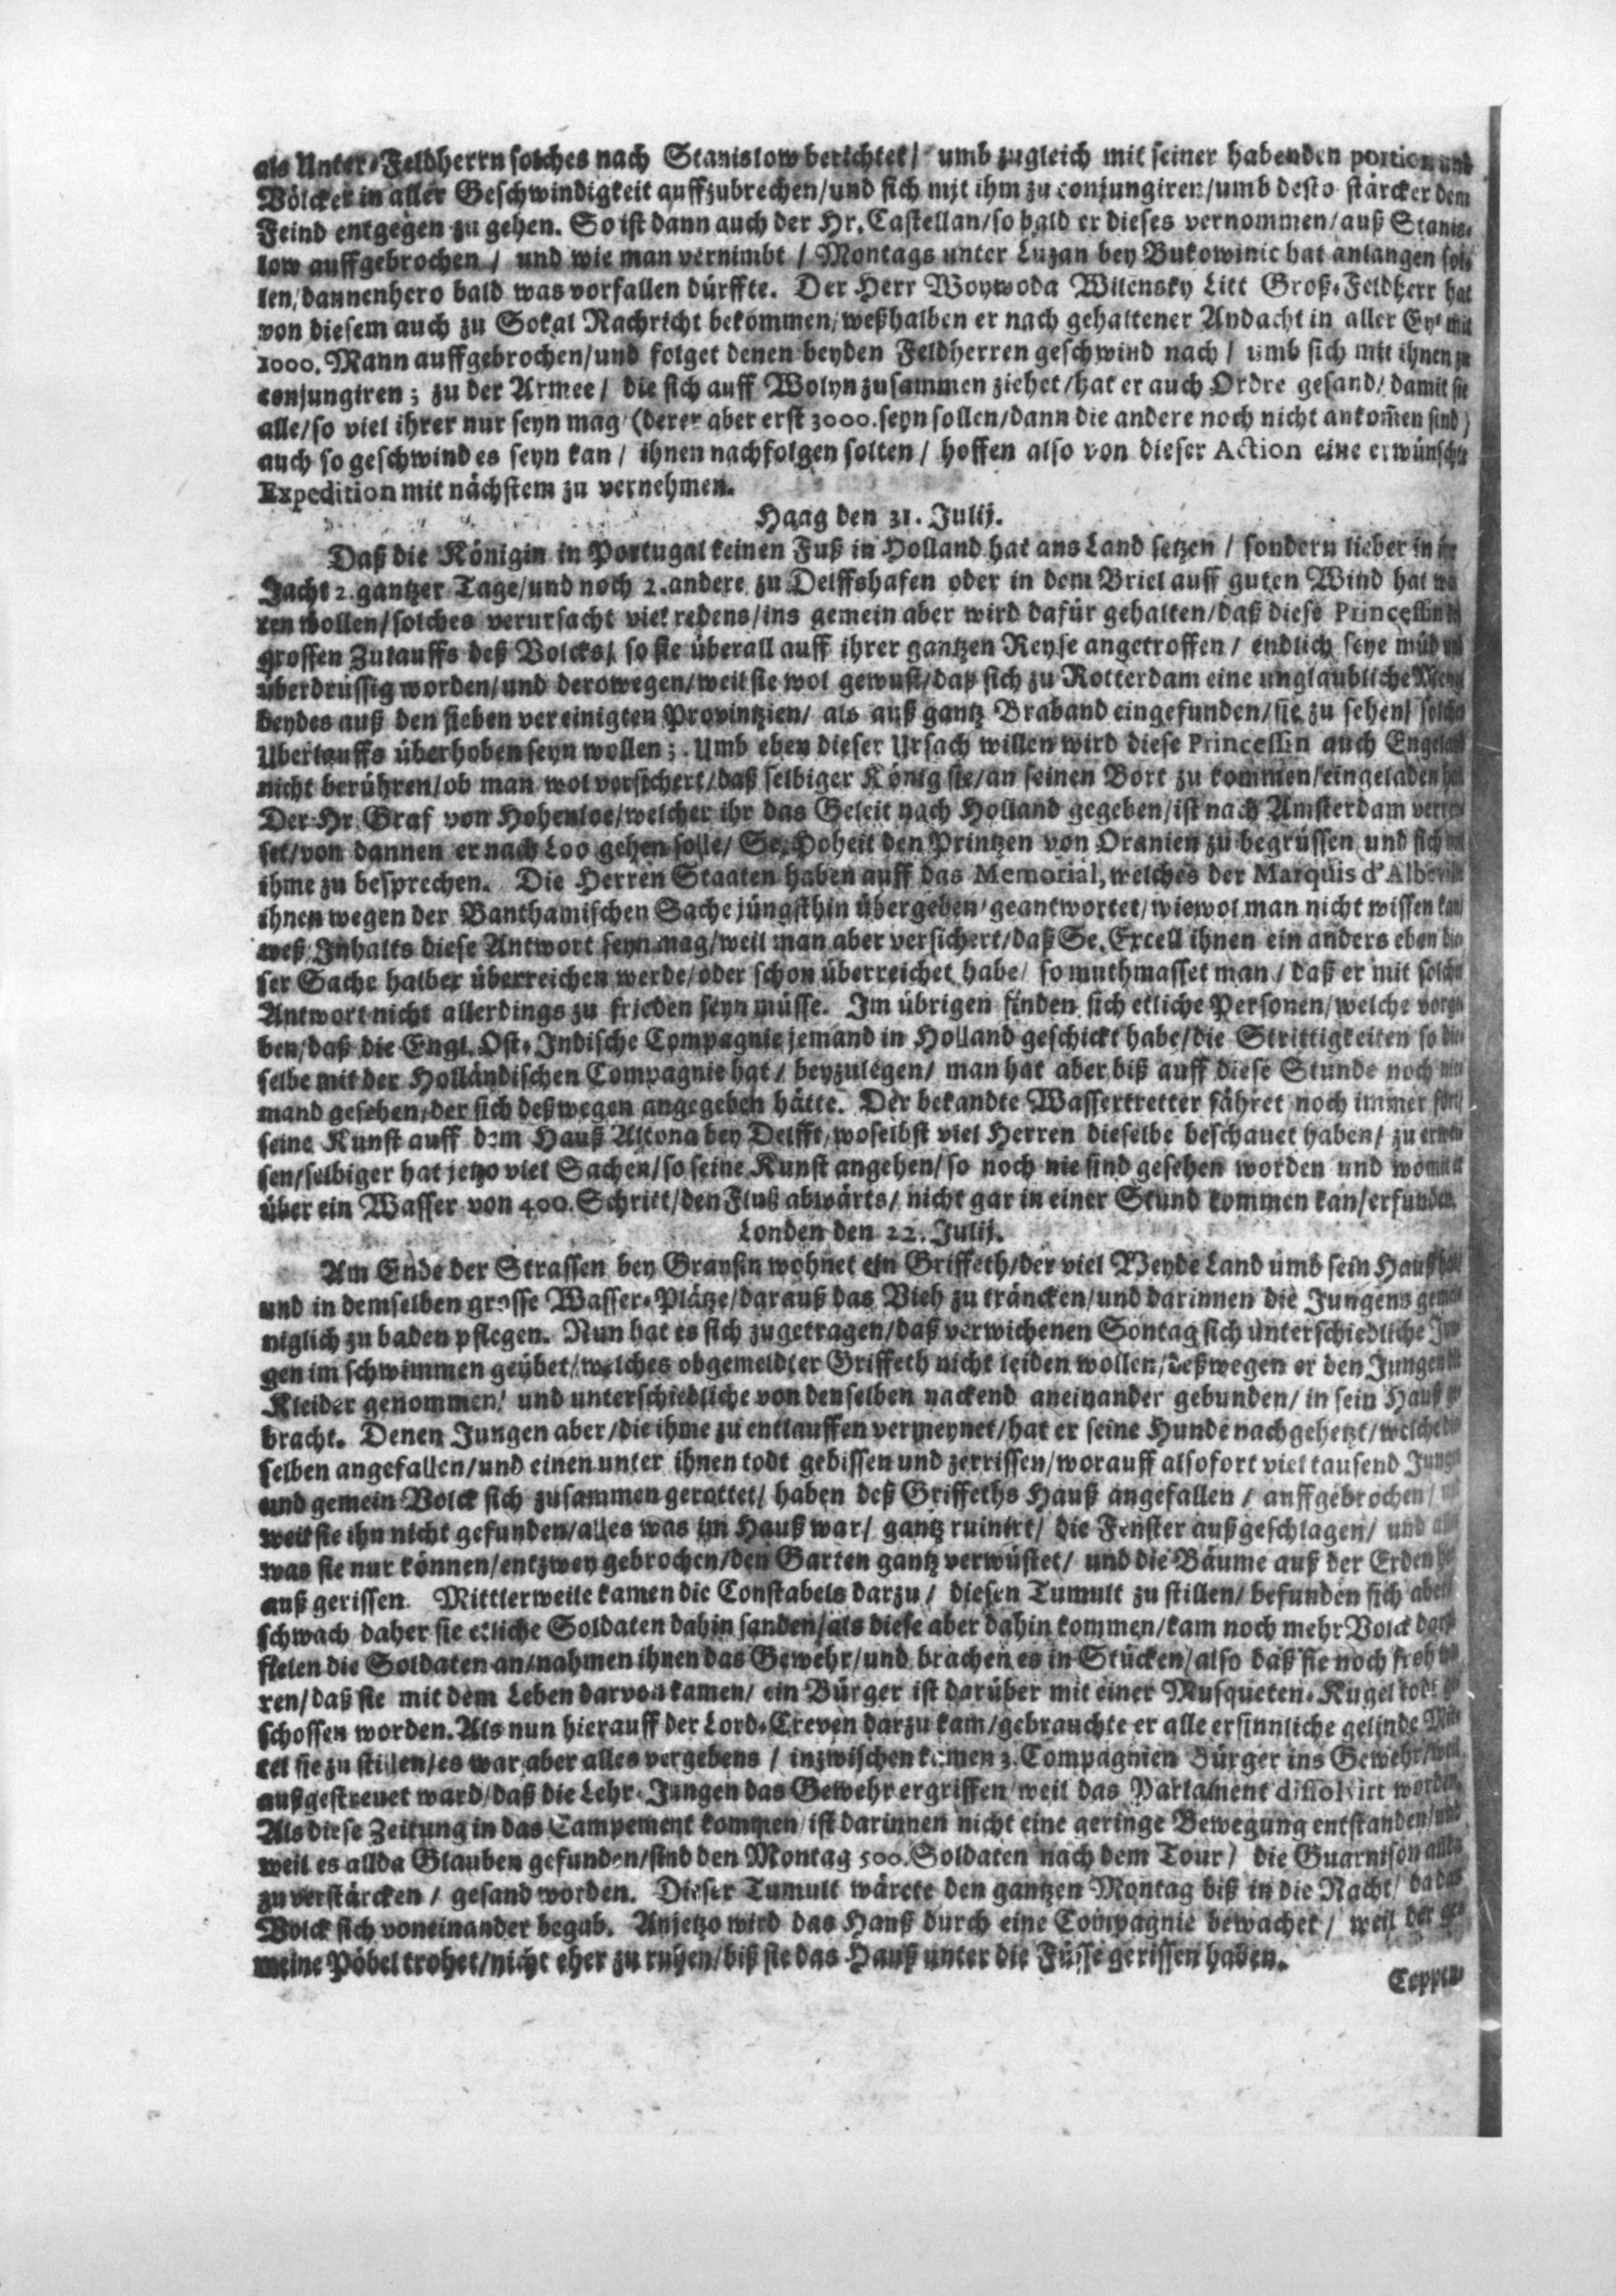 als Unter-Feldherrn solches nach Stanislow berichtet/ umb zugleich mit seiner habenden portion und
Völcker in aller Geschwindigkeit auffzubrechen/und sich mit ihm zu conjungiren/umb desto stärcker dem
Feind entgegen zu gehen. So ist dann auch der Hr. Castellan/so bald er dieses vernommen/auß Stanis-
low auffgebrochen/ und wie man vernimbt/ Montags unter Luzan bey Bukowinic hat anlangen sol-
len/dannenhero bald was vorfallen dürffte. Der Herr Woywoda Wilensky Litt Groß-Feldherr hat
von diesem auch zu Sokal Nachricht bekommen/weßhalben er nach gehaltener Andacht in aller Eyl mit
1000. Mann auffgebrochen/und folget denen beyden Feldherren geschwind nach/ umb sich mit ihnen zu
conjungiren; zu der Armee/ die sich auff Wolyn zusammen ziehet/hat er auch Ordre gesand/damit sie
alle/so viel ihrer nur seyn mag (derer aber erst 3000. seyn sollen/dann die andere noch nicht ankom̃en sind)
auch so geschwind es seyn kan/ ihnen nachfolgen solten/ hoffen also von dieser Action eine erwünschte
Expedition mit nächstem zu vernehmen.
Haag den 31. Julij.
Daß die Königin in Portugal keinen Fuß in Holland hat ans Land setzen/ sondern lieber in ihr
Jacht 2. gantzer Tage/und noch 2. andere zu Delffshafen oder in dem Briel auff guten Wind hat wa
ren wollen/solches verursacht viel redens/ins gemein aber wird dafür gehalten/daß diese Princessin
grossen Zulauffs deß Volcks/ so sie überall auff ihrer gantzen Reyse angetroffen/ endlich seye müd
überdrüssig worden/und derowegen/weil sie wol gewust/daß sich zu Rotterdam eine unglaubliche Meng
beydes auß den sieben vereinigten Provintzien/ als auß gantz Braband eingefunden/sie zu sehen/ solches
Uberlauffs überhoben seyn wollen; Umb eben dieser Ursach willen wird diese Princessin auch Engeland
nicht berühren/ob man wol versichert/daß selbiger König sie/an seinen Bort zu kommen/eingeladen hat
Der Hr. Graf von Hohenloe/welcher ihr das Geleit nach Holland gegeben/ist nach Amsterdam verrei-
set/von dannen er nach Loo gehen solle/ Se. Hoheit den Printzen von Oranien zu begrüssen und sich mit
ihme zu besprechen. Die Herren Staaten haben auff das Memorial, welches der Marquis d'Albeville
ihnen wegen der Banthamischen Sache jüngsthin übergeben/geantwortet/wiewol man nicht wissen kan/
weß Inhalts diese Antwort seyn mag/weil man aber versichert/daß Se. Excell ihnen ein anders eben die-
ser Sache halber überreichen werde/oder schon überreichet habe/ so muthmasset man/ daß er mit solcher
Antwort nicht allerdings zu frieden seyn müsse. Im übrigen finden sich etliche Personen/welche vorge
ben/daß die Engl. Ost-Indische Compagnie jemand in Holland geschickt habe/die Strittigkeiten so die-
selbe mit der Holländischen Compagnie hat/ beyzulegen/ man hat aber biß auff diese Stunde noch nie-
mand gesehen/der sich deßwegen angegeben hätte. Der bekandte Wassertretter fähret noch immer fort/
seine Kunst auff dem Hauß Altona bey Delfft/woselbst viel Herren dieselbe beschauet haben/ zu erwei
sen/selbiger hat jetzo viel Sachen/so seine Kunst angehen/so noch nie sind gesehen worden und womit er
über ein Wasser von 400. Schritt/den Fluß abwärts/ nicht gar in einer Stund kommen kan/erfunden.
Londen den 22. Julij.
Am Ende der Strassen bey Graysin wohnet ein Griffeth/der viel Weyde Land umb sein Hauß hat/
und in demselben grosse Wasser-Plätze/darauß das Vieh zu träncken/und darinnen die Jungens gemei-
niglich zu baden pflegen. Nun hat es sich zugetragen/daß verwichenen Sontag sich unterschiedliche Jun-
gen im schwimmen geübet/welches obgemeldter Griffeth nicht leiden wollen/deßwegen er den Jungen die
Kleider genommen/ und unterschiedliche von denselben nackend aneinander gebunden/ in sein Hauß ge-
bracht. Denen Jungen aber/die ihme zu entlauffen vermeynet/hat er seine Hunde nachgehetzt/welche die
selben angefallen/und einen unter ihnen todt gebissen und zerrissen/worauff alsofort viel tausend Jungen
und gemein Volck sich zusammen gerottet/ haben deß Griffeths Hauß angefallen/ auffgebrochen/ und
weil sie ihn nicht gefunden/alles was im Hauß war/ gantz ruinirt/ die Fenster außgeschlagen/ und alles
was sie nur können/entzwey gebrochen/den Garten gantz verwüstet/ und die Bäume auß der Erden her-
auß gerissen. Mittlerweile kamen die Constabels darzu/ diesen Tumult zu stillen/ befunden sich aber
schwach daher sie etliche Soldaten dahin sanden/als diese aber dahin kommen/kam noch mehr Volck darzu
fielen die Soldaten an/nahmen ihnen das Gewehr/und brachen es in Stücken/also daß sie noch froh wa-
ren/daß sie mit dem Leben darvon kamen/ ein Bürger ist darüber mit einer Musqueten-Kugel todt ge-
schossen worden. Als nun hierauff der Lord-Creven darzu kam/gebrauchte er alle ersinnliche gelinde Mit-
tel sie zu stillen/es war aber alles vergebens/ inzwischen kamen 3. Compagnien Bürger ins Gewehr/weil
außgestreuet ward/daß die Lehr-Jungen das Gewehr ergriffen/weil das Parlament dissolvirt worden.
Als diese Zeitung in das Campement kommen/ist darinnen nicht eine geringe Bewegung entstanden/und
weil es allda Glauben gefunden/sind den Montag 500. Soldaten nach dem Tour/ die Guarnison allda
zu verstärcken/ gesand worden. Dieser Tumult wärete den gantzen Montag biß in die Nacht/ da das
Volck sich voneinander begab. Anjetzo wird das Hauß durch eine Compagnie bewachet/ weil der ge-
meine Pöbel trohet/nicht eher zu ruhen/biß sie das Hauß unter die Füsse gerissen haben.